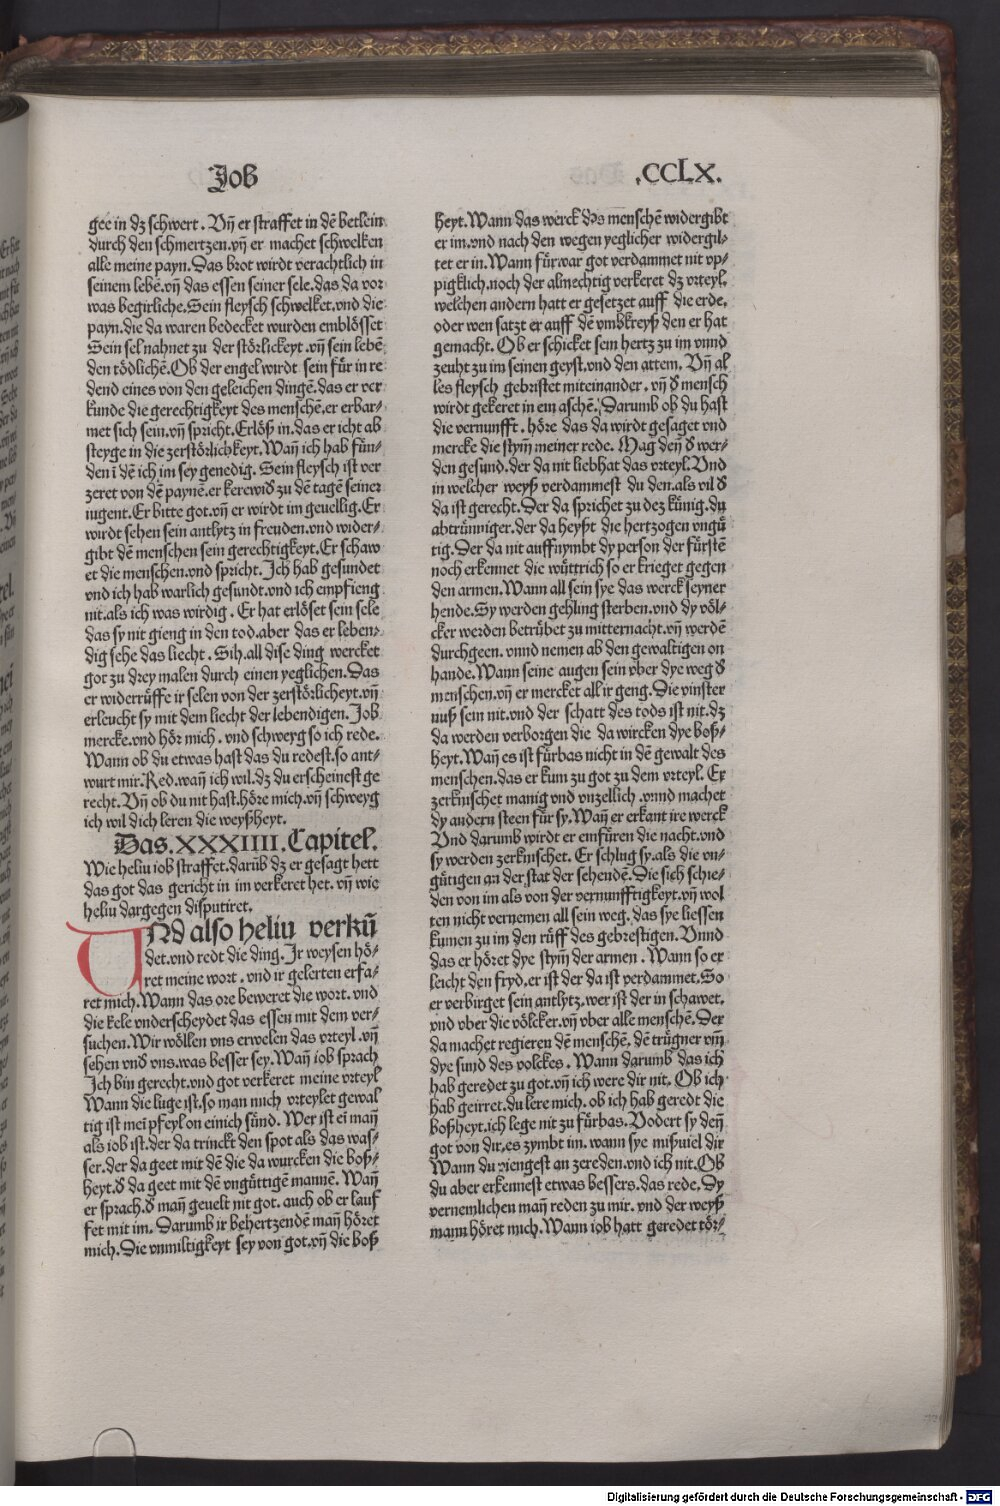 Job
.CCLX.
gee in dz schwert. Vñ er straffet in dē betlein
durch den schmertzen.vñ er machet schwelken
alle meine payn. Das brot wirdt verachtlich in
seinem lebē.vñ das essen seiner sele.das da vor
was begirliche. Sein fleysch schwelket.vnd die
payn.die da waren bedecket wurden emblösset
Sein sel nahnet zu der störlickeyt.vñ sein lebē
den tödlichē. Ob der engel wirdt sein für in re
dend eines von den geleichen dingē.das er ver
kunde die gerechtigkeyt des menschē.er erbar⸗
met sich sein.vñ spricht. Erlöß in.das er icht ab
steyge in die zerstörlichkeyt. Wañ ich hab fun⸗
den ī dē ich im sey genedig. Sein fleysch ist ver
zeret von dē paynē.er kere wiď zu dē tagē seiner
iugent. Er bitte got.vñ er wirdt im geuellig. Er
wirdt sehen sein antlytz in freuden.vnd wider⸗
gibt dē menschen sein gerechtigkeyt. Er schaw
et die menschen.vnd spricht. Ich hab gesundet
vnd ich hab warlich gesundt.vnd ich empfieng
nit.als ich was wirdig. Er hat erlöset sein sele
das sy nit gieng in den tod.aber das er leben⸗
dig sehe das liecht. Sih.all dise ding wercket
got zu drey malen durch einen yeglichen. Das
er widerrüffe ir selen von der zerstörlicheyt.vñ
erleucht sy mit dem liecht der lebendigen. Job
mercke.vnd hör mich. vnd schweyg so ich rede.
Wann ob du etwas hast das du redest.so ant⸗
wurt mir. Red.wañ ich wil.dz du erscheinest ge
recht. Vñ ob du nit hast.höre mich.vñ schweyg
ich wil dich leren die weyßheyt.
Das.XXXIIII.Capitel.
Wie heliu iob straffet.darūb dz er gesagt hett
das got das gericht in im verkeret het. vñ wie
heliu dargegen disputiret.
VNd also heliu verkū
det.vnd redt die ding. Ir weysen hö⸗
ret meine wort. vnd ir gelerten erfa⸗
ret mich. Wann das ore beweret die wort. vnd
die kele vnderscheydet das essen mit dem ver⸗
suchen. Wir wöllen vns erwelen das vrteyl.vñ
sehen vnď vns.was besser sey. Wañ iob sprach
Ich bin gerecht.vnd got verkeret meine vrteyl
Wann die luge ist.so man mich vrteylet gewal
tig ist meī pfeyl on einich sünd. Wer ist eī mañ
als iob ist.der da trinckt den spot als das was⸗
ser.der da geet mit dē die da wurcken die boß⸗
heyt.ď da geet mit dē vngüttigē mannē. Wañ
er sprach.ď mañ geuelt nit got. auch ob er lauf
fet mit im. Darumb ir behertzendē mañ höret
mich. Die vnmiltigkeyt sey von got.vñ die boß
heyt. Wann das werck des menschē widergibt
er im.vnd nach den wegen yeglicher widergil⸗
tet er in. Wann fürwar got verdammet nit vp⸗
pigklich.noch der almechtig verkeret dz vrteyl.
welchen andern hatt er gesetzet auff die erde.
oder wen satzt er auff dē vmbkreyß den er hat
gemacht. Ob er schicket sein hertz zu im vnnd
zeuht zu im seinen geyst.vnd den attem. Vñ al
les fleysch gebristet miteinander. vñ ď mensch
wirdt gekeret in ein aschē. Darumb ob du hast
die vernunfft. höre das da wirdt gesaget vnd
mercke die stym̄ meiner rede. Mag deñ ď wer⸗
den gesund.der da nit liebhat das vrteyl. Vnd
in welcher weyß verdammest du den.als vil ď
da ist gerecht. Der da sprichet zu dez künig.du
abtrünniger.der da heyßt die hertzogen vngü
tig. Der da nit auffnymbt dy person der fürstē
noch erkennet die wüttrich so er krieget gegen
den armen. Wann all sein sye das werck seyner
hende. Sy werden gehling sterben.vnd dy völ⸗
cker werden betrübet zu mitternacht.vñ werdē
durchgeen. vnnd nemen ab den gewaltigen on
hande. Wann seine augen sein vber dye weg ď
menschen.vñ er mercket all ir geng. Die vinster
nuß sein nit.vnd der schatt des tods ist nit.dz
da werden verborgen die da wircken dye boß⸗
heyt. Wañ es ist fürbas nicht in dē gewalt des
menschen.das er kum zu got zu dem vrteyl. Er
zerknischet manig vnd vnzellich.vnnd machet
dy andern steen für sy. Wañ er erkant ire werck
Vnd darumb wirdt er einfüren die nacht.vnd
sy werden zerknischet. Er schlug sy.als die vn⸗
gütigen an der stat der sehendē. Die sich schie⸗
den von im als von der vernunfftigkeyt.vñ wol
ten nicht vernemen all sein weg.das sye liessen
kumen zu im den rüff des gebrestigen. Vnnd
das er höret dye stym̄ der armen. Wann so er
leicht den fryd.er ist der da ist verdammet. So
er verbirget sein antlytz.wer ist der in schawet.
vnd vber die völcker.vñ vber alle menschē. Der
da machet regieren dē menschē. dē trügner vm̄
dye sund des volckes. Wann darumb das ich
hab geredet zu got.vñ ich were dir nit. Ob ich
hab geirret.du lere mich. ob ich hab geredt die
boßheyt.ich lege nit zu fürbas. Vodert sy deñ
got von dir.es zymbt im. wann sye mißuiel dir
Wann du viengest an zereden.vnd ich nit. Ob
du aber erkennest etwas bessers.das rede. Dy
vernemlichen mañ reden zu mir. vnd der weyß
mann höret mich. Wann iob hatt geredet tör⸗
Digitalisierung gefördert durch die Deutsche Forschungsgemeinschaft - DFG